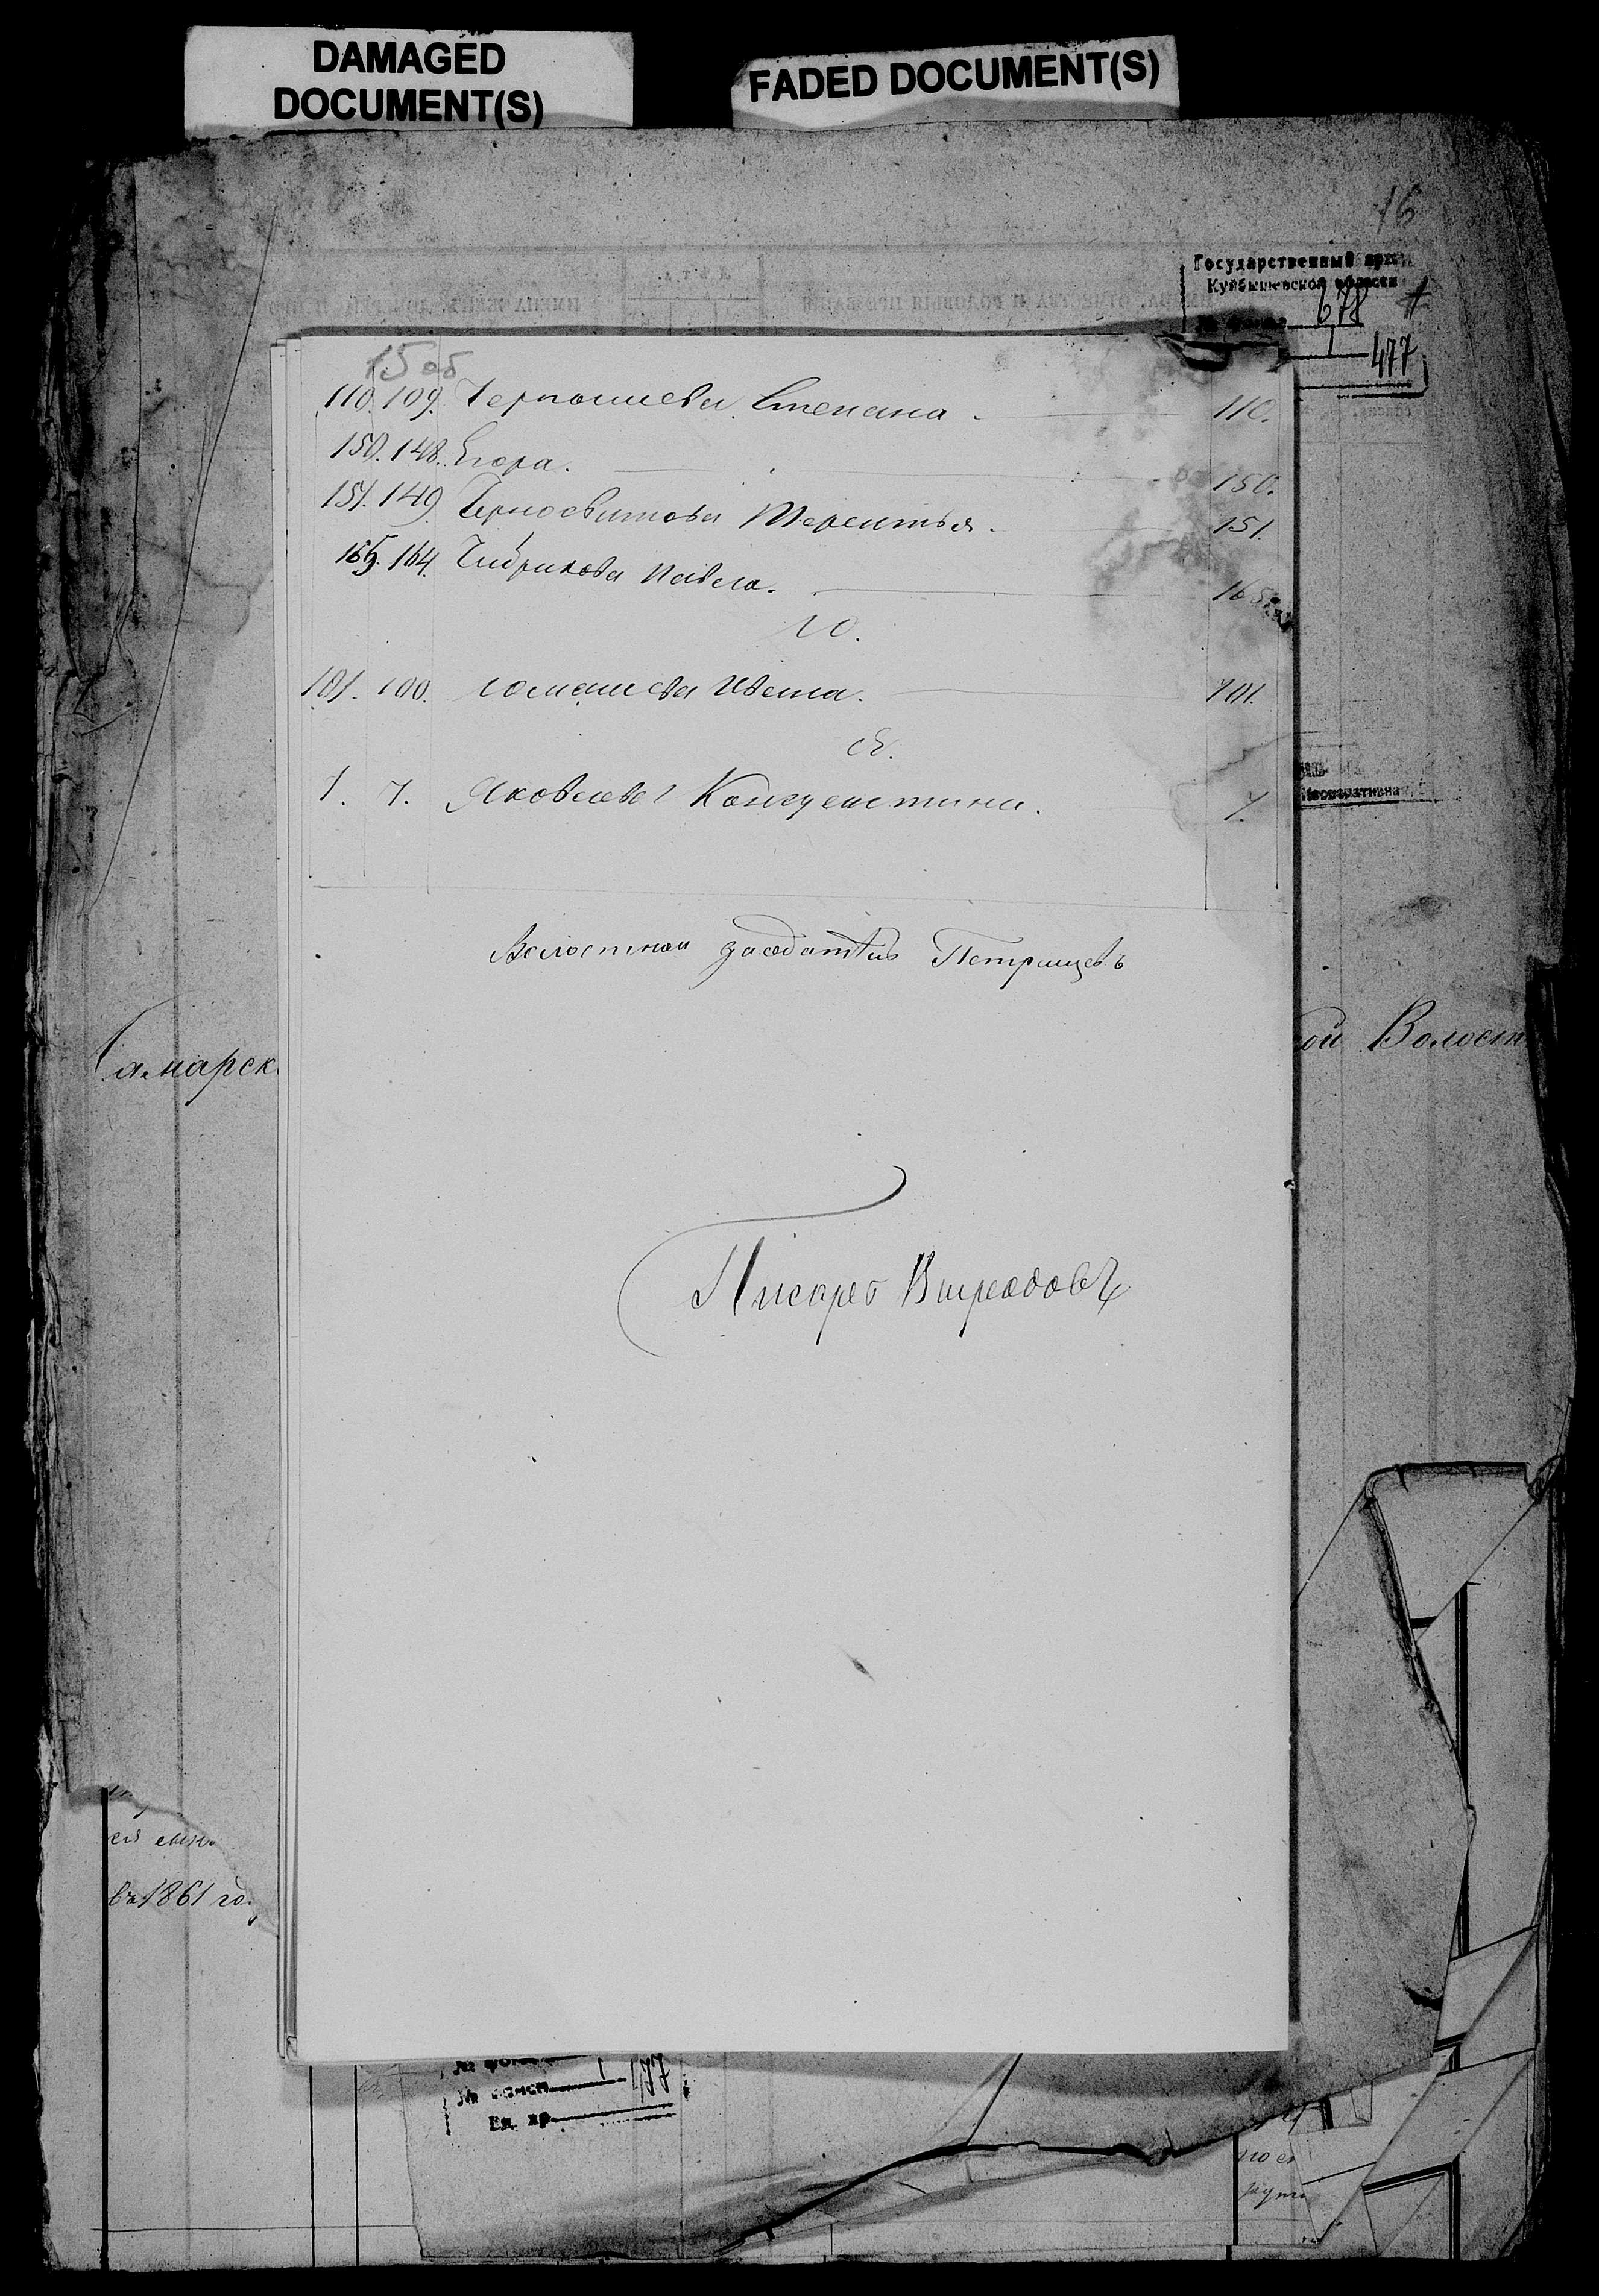 DAMAGED
DOCUMENT(S)
FADED DOCUMENT(S)
16
Государственный архив
Куйбышевской области
678
1
477
15 об
110. 109. Чернышева Степана. 110.
150. 148. Егора. 150.
151. 149. Черноситова Терентья. 151.
165. 164. Чибрикова Павла. 165.
Ю.
101. 100. Юманшева Ивана. 101.
Я.
7. 7. Яковлева Константина. 7.
Волостной заседатель Петрищевъ
Самарск
ой Волост
Писарь
въ 1861 го
1
477
Ед. хр.